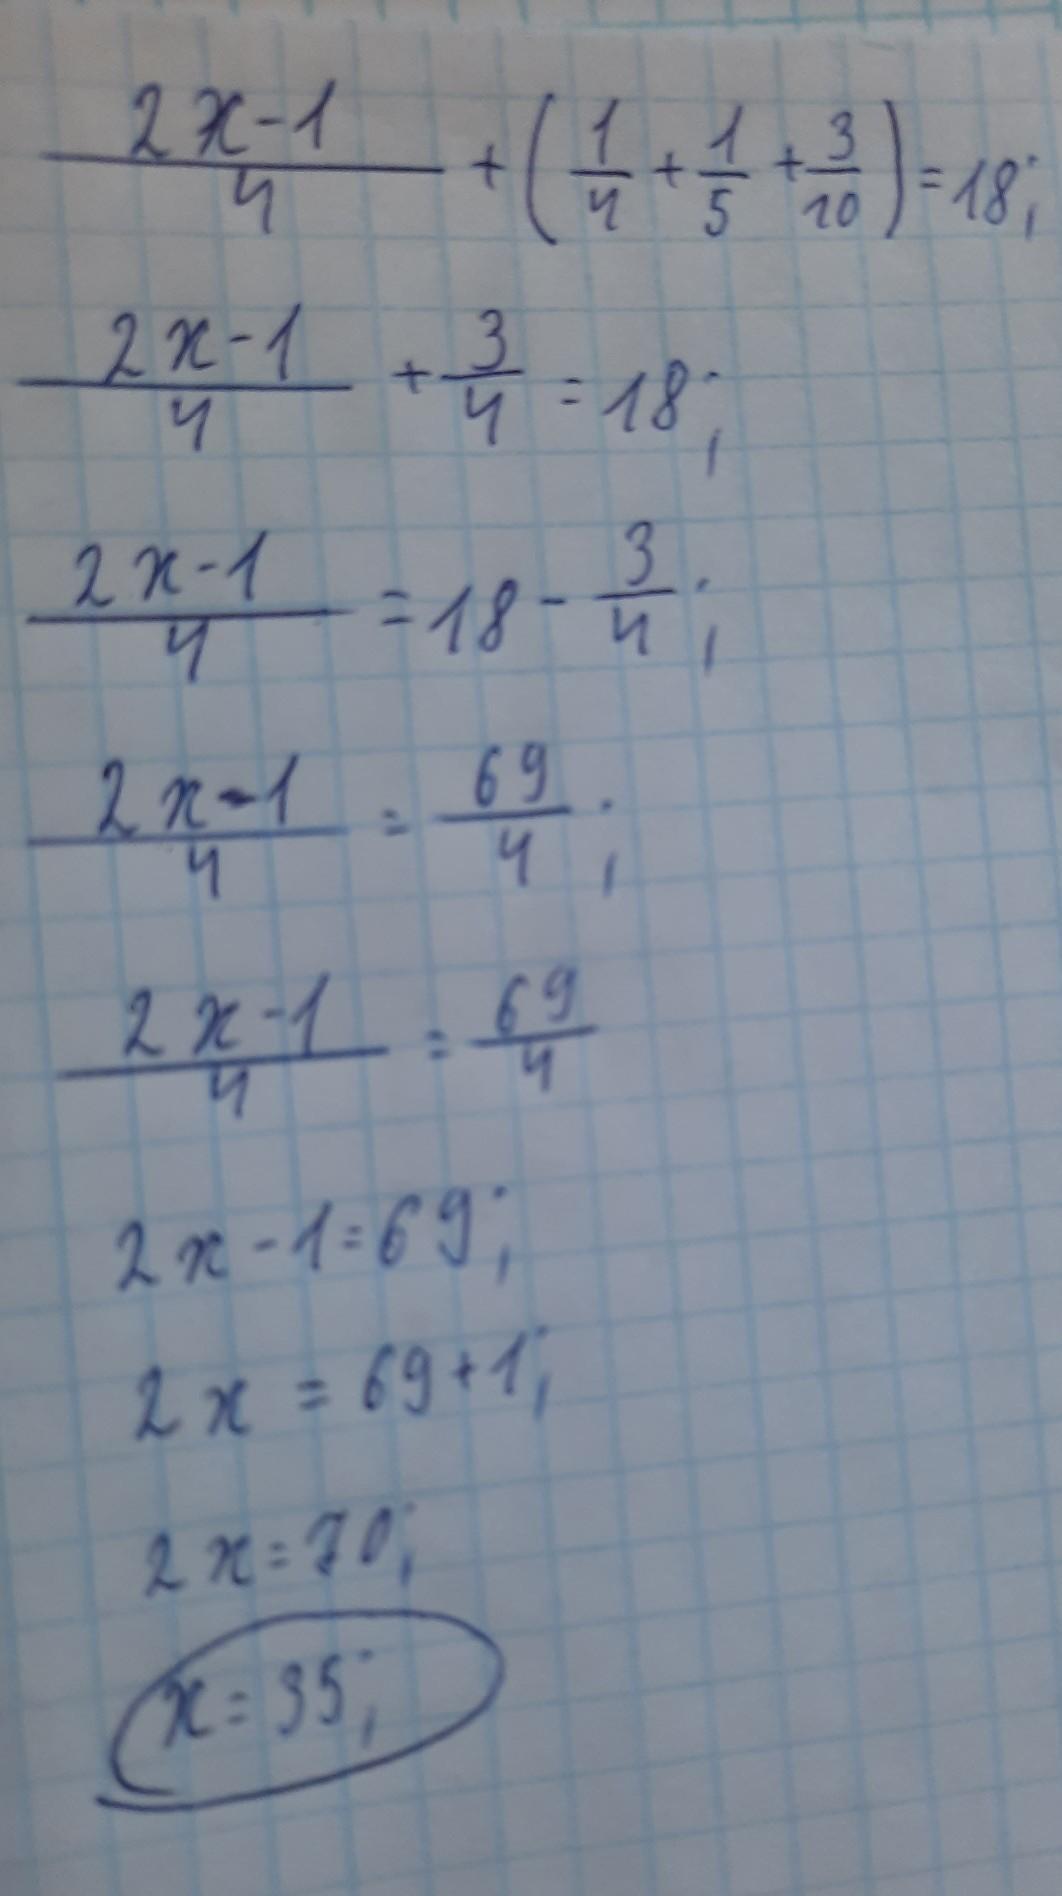 (2x-1)/4 + (1/4 + 1/5 + 3/10) = 18;
(2x-1)/4 + 3/4 = 18;
(2x-1)/4 = 18 - 3/4;
(2x-1)/4 = 69/4;
(2x-1)/4 = 69/4
2x-1=69;
2x = 69+1;
2x=70;
x=35;